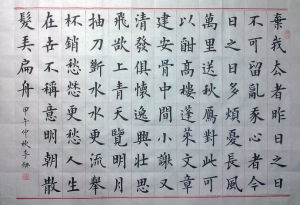 棄我去者昨日之日
不可留亂我心者今
日之日多煩憂長風
萬里送秋雁對此可
以酣高樓蓬萊文章
建安骨中間小謝又
清發俱懷逸興壯思
飛欲上青天覽明月
抽刀斷水水更流舉
杯銷愁愁更愁人生
在世不稱意明朝散
髮弄扁舟
甲午仲秋李